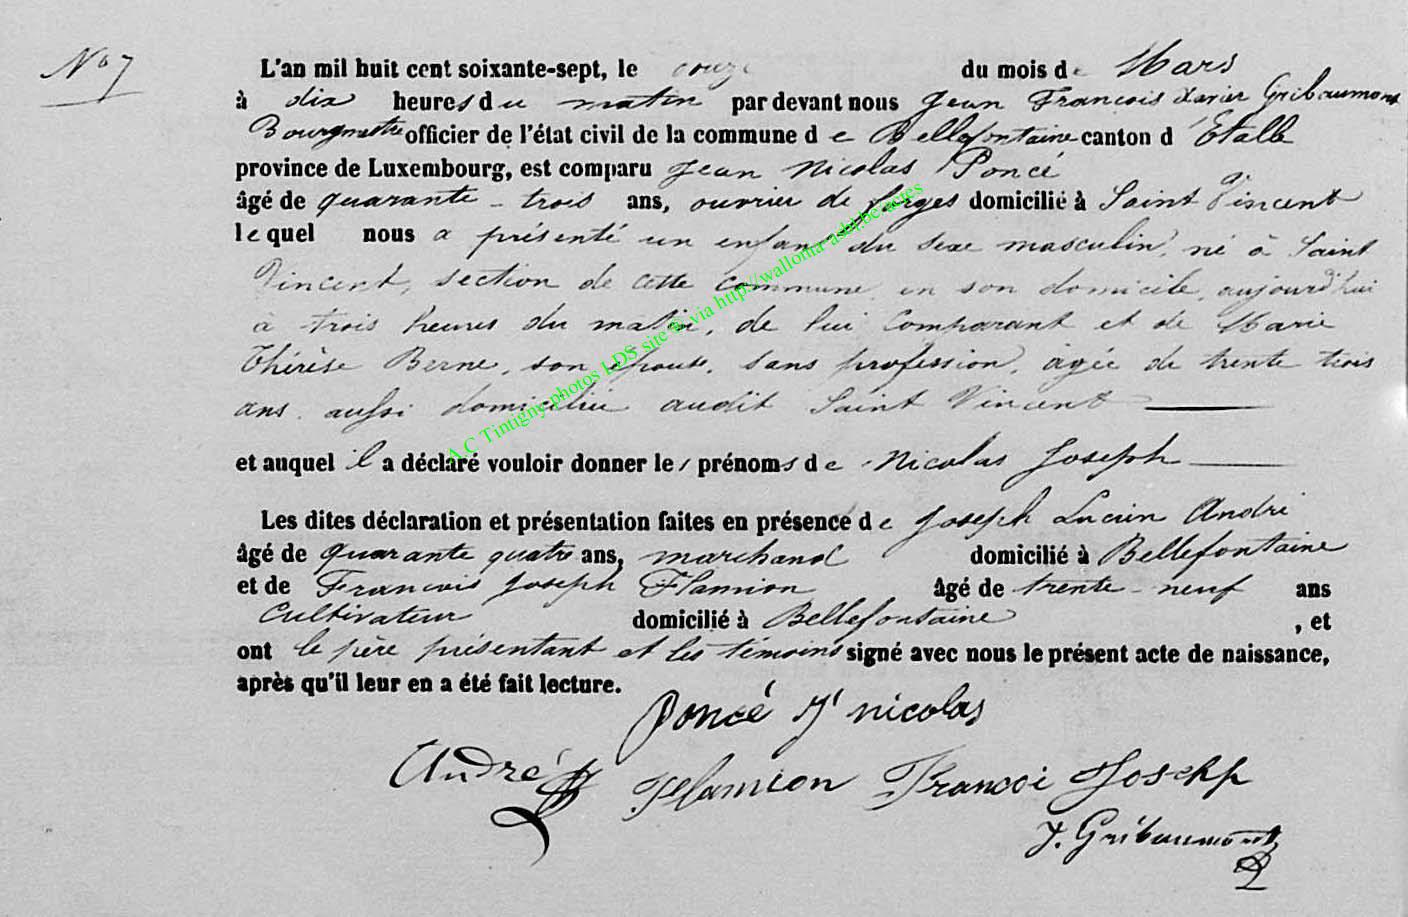 N° 7
L'an mil huit cent soixante-sept, le onze du mois de Mars
à dix heures du matin par devant nous Jean François Xavier Gribaumont
Bourgmestre officier de l'état civil de la commune de Bellefontaine canton d'Etalle
province de Luxembourg, est comparu Jean Nicolas Poncé
âgé de quarante-trois ans, ouvrier de forges domicilié à Saint Vincent
lequel nous a présenté un enfant du sexe masculin, né à Saint
Vincent, section de cette commune, en son domicile, aujourd'hui
à trois heures du matin, de lui comparant et de Marie
Thérèse Berne, son épouse, sans profession, âgée de trente trois
ans, aussi domiciliée audit Saint Vincent
et auquel il a déclaré vouloir donner les prénoms de Nicolas Joseph
Les dites déclaration et présentation faites en présence de Joseph Lucien André
âgé de quarante quatre ans, marchand domicilié à Bellefontaine
et de François Joseph Flamion âgé de trente-neuf ans
Cultivateur domicilié à Bellefontaine, et
ont le père présentant et les témoins signé avec nous le présent acte de naissance,
après qu'il leur en a été fait lecture.
Poncé Jn nicolas
André
Flamion Francoi Josehp
J. Gribaumont
A.C Tintigny photos LDS site © via http://wallonia-asbl.be/actes